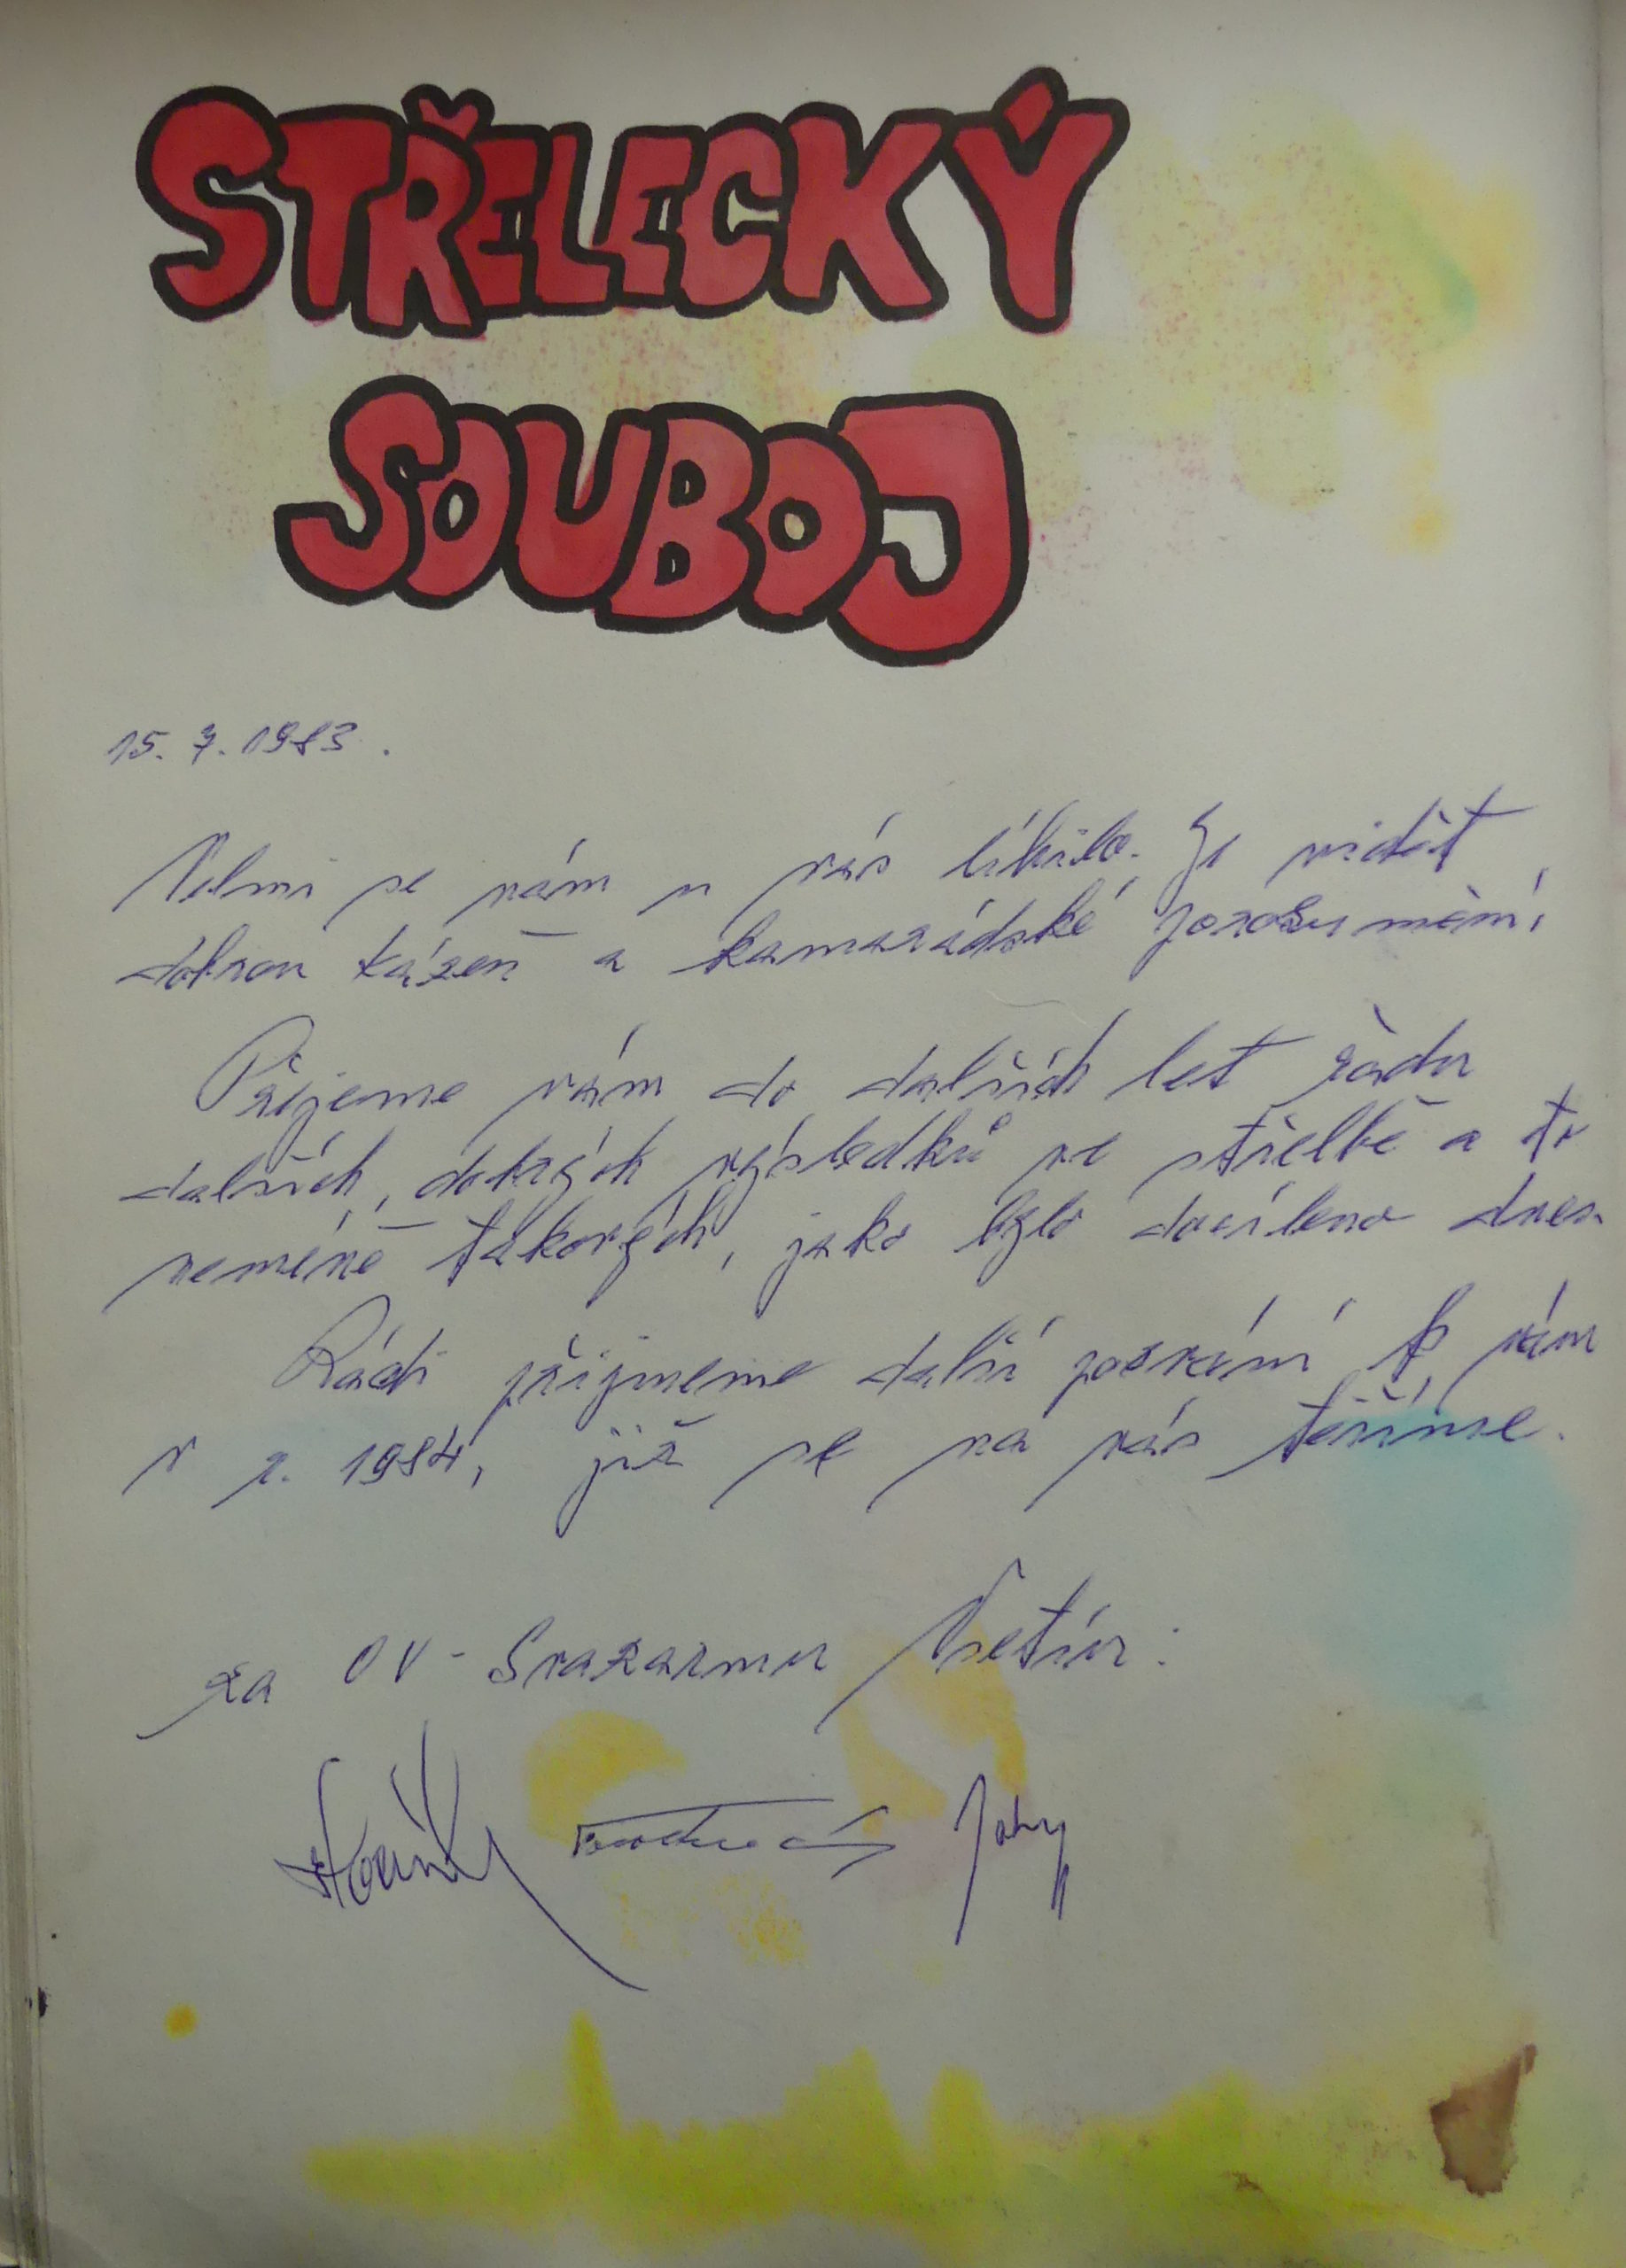 STŘELECKÝ
SOUBOJ
15. 7. 1983.
Velmi se nám u vás líbilo. Je vidět
dobrou kázeň a kamarádské porozumění,
Přejeme vám do dalších let řadu
dalších, dobrých výsledků ve střelbě a to
neméně takových, jako bylo docíleno dnes.
Rádi přijmeme další pozvání k vám
v r. 1984, již se na vás těšíme.
za OV - Svazarmu Vsetín: